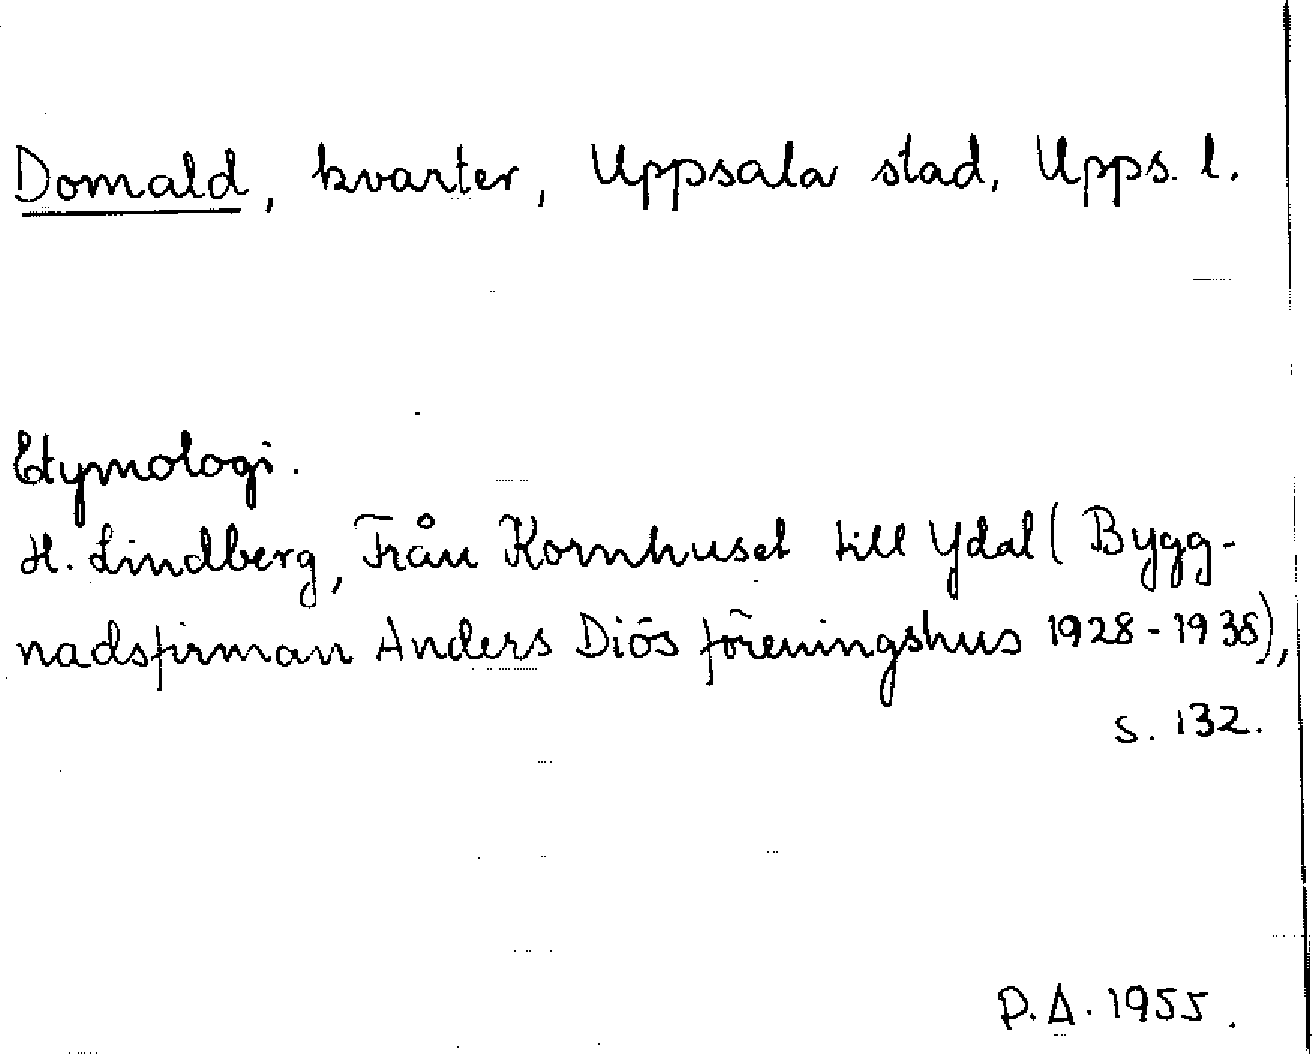 Domald, kvarter, Uppsala stad, Upps. l.
Etymologi.
H. Lindberg, Från Kornhuset till Ydal (Bygg-
nadsfirman Anders Diös föreningshus 1928-1938),
s. 132.
P.A. 1955.